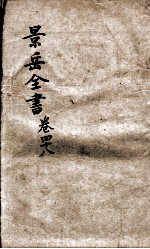 景岳全書
卷四十八